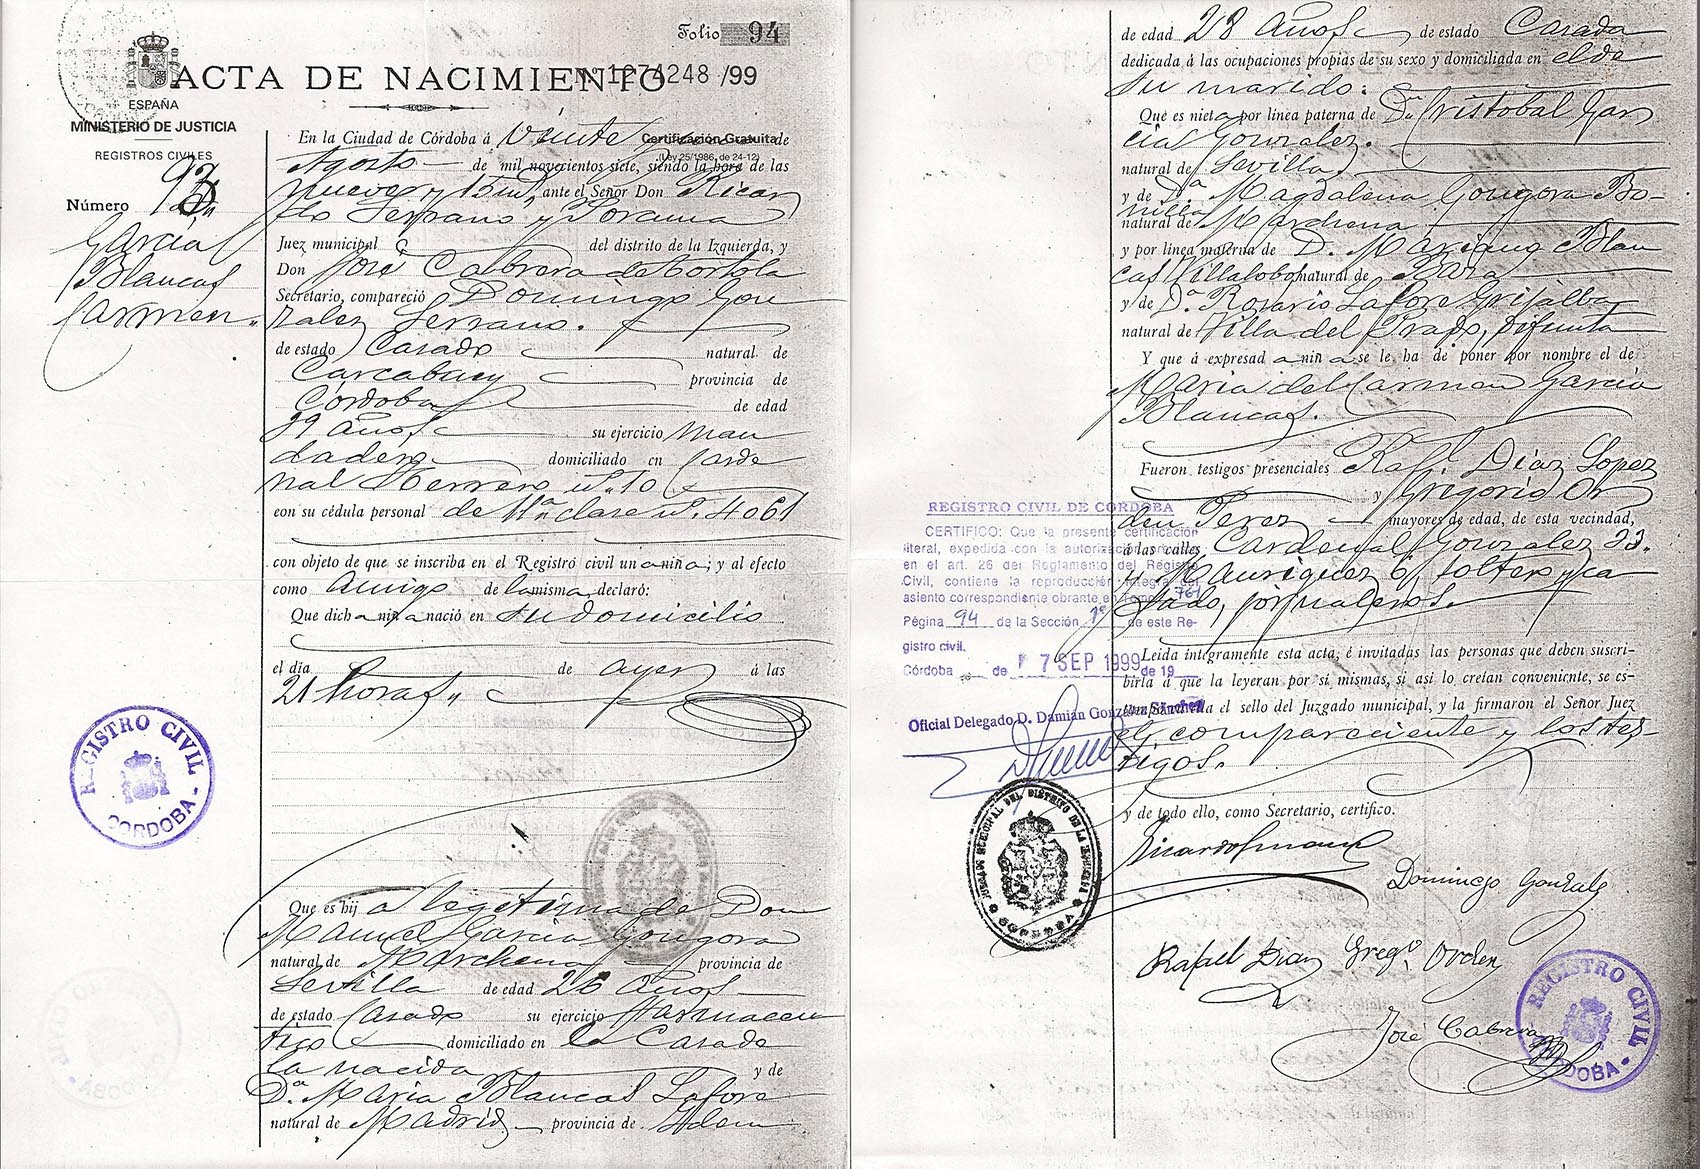 Folio 94
ACTA DE NACIMIENTO
Nº 1274248 /99
ESPAÑA
MINISTERIO DE JUSTICIA
REGISTROS CIVILES
Número 93
García
Blancas
Carmen
Certificación Gratuita
(Ley 25/1986, de 24-12)
En la Ciudad de Córdoba á Veinte de
Agosto de mil novecientos siete, siendo la hora de las
nueve y 15 ms, ante el Señor Don Ricar
do Serrano y
Juez municipal del distrito de la Izquierda, y
Don José Cabrera de
Secretario, compareció Domingo Gon
zalez Serrano.
de estado Casado natural de
Carcabuey provincia de
Córdoba de edad
39 años su ejercicio man
dadero domiciliado en Carde
nal Herrero nº 10
con su cédula personal de 11ª clase nº 4061
con objeto de que se inscriba en el Registro civil una niña; y al efecto
como Amigo de la misma declaró:
Que dicha niña nació en su domicilio
el día de ayer á las
21 horas
Que es hija legítima de Don
Manuel García Gongora
natural de Marchena provincia de
Sevilla de edad 26 años
de estado Casado su ejercicio Farmaceu
tico domiciliado en la Casa de
la nacida y de
D.ª María Blancas Lafore
natural de Madrid provincia de Idem
REGISTRO CIVIL
CORDOBA
de edad 28 Años de estado Casada
dedicada á las ocupaciones propias de su sexo y domiciliada en el de
su marido.
Que es nieta por línea paterna de Dn Cristobal Gar
cia Gonzalez.
natural de Sevilla
y de D.ª Magdalena Gongora Bo-
nilla
natural de Marchena
y por línea materna de D. Mariano Blan
cas Villalobo natural de Baza
y de D.ª Rosario Lafore Grijalba
natural de Villa del Prado, difunta
Y que á expresada niña se le ha de poner por nombre el de
Maria del Carmen García
Blancas.
Fueron testigos presenciales Raf. Díaz Lopez
y Gregorio Or
den Perez mayores de edad, de esta vecindad,
á las calles Cardenal Gonzalez 23.
y Manriquez 6, soltero y ca
sado, jornaleros.
Leída íntegramente esta acta, é invitadas las personas que deben suscri-
birla á que la leyeran por sí mismas, si así lo creían conveniente, se es-
tampó en ella el sello del Juzgado municipal, y la firmaron el Señor Juez
el compareciente y los tes-
tigos.
y de todo ello, como Secretario, certifico.
REGISTRO CIVIL DE CORDOBA
CERTIFICO: Que la presente certificación
literal, expedida con la autorización prevista
en el art. 26 del Reglamento del Registro
Civil, contiene la reproducción íntegra del
asiento correspondiente obrante en Tomo 761
Página 94 de la Sección 1ª de este Re-
gistro civil.
Córdoba de 7 SEP 1999 de 19
Oficial Delegado D. Damián González Sánchez
JUZGADO MUNICIPAL DEL DISTRITO DE LA IZQUIERDA
CORDOBA
Domingo Gonzalez
Rafael Diaz Gregº Orden
José Cabrera
REGISTRO CIVIL
CORDOBA